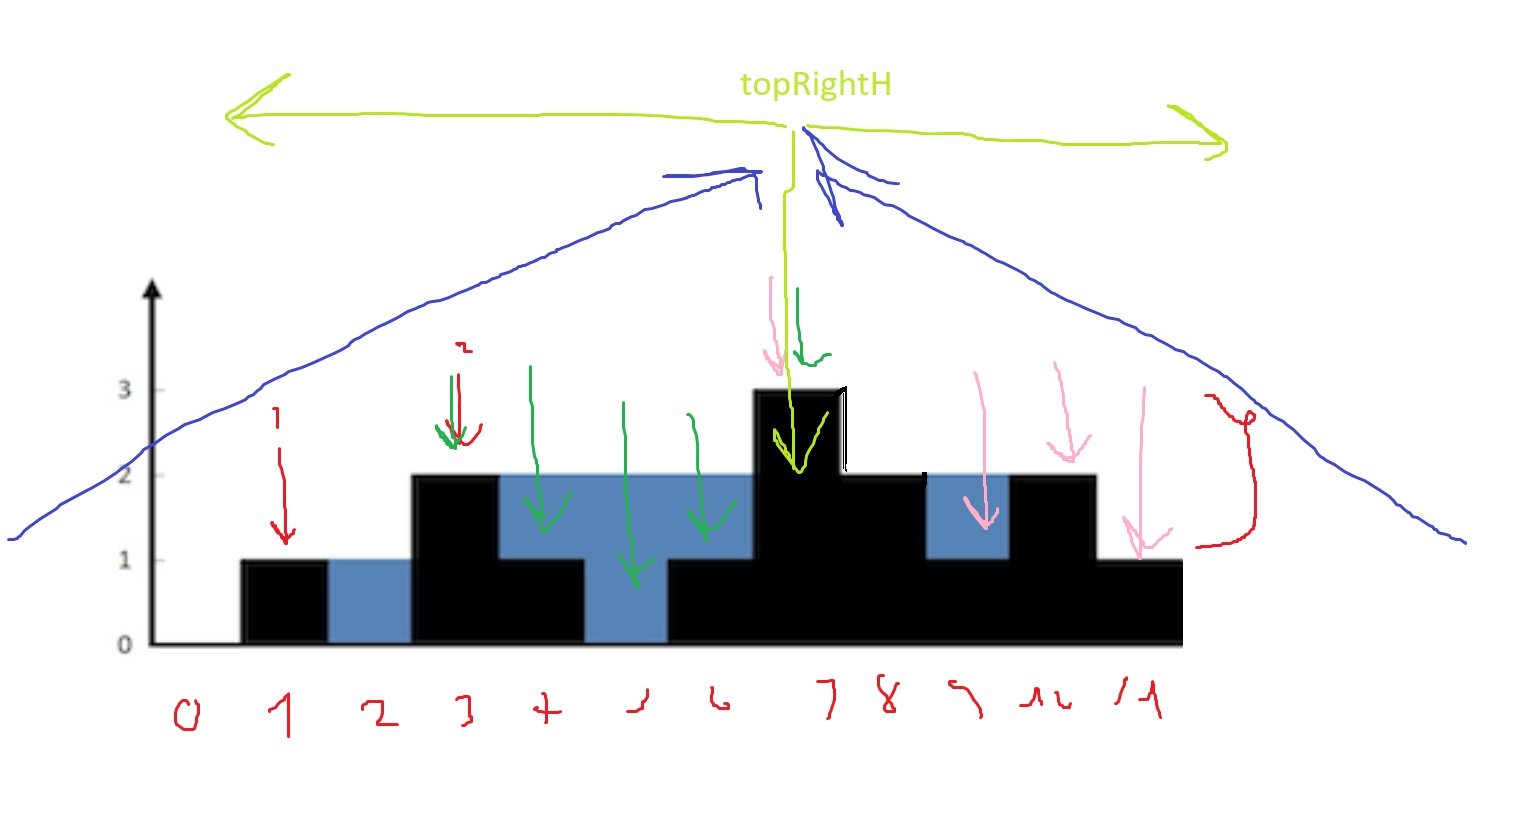 topRightH
3
2
1
0
1
2
0 1 2 3 4 5 6 7 8 9 10 11